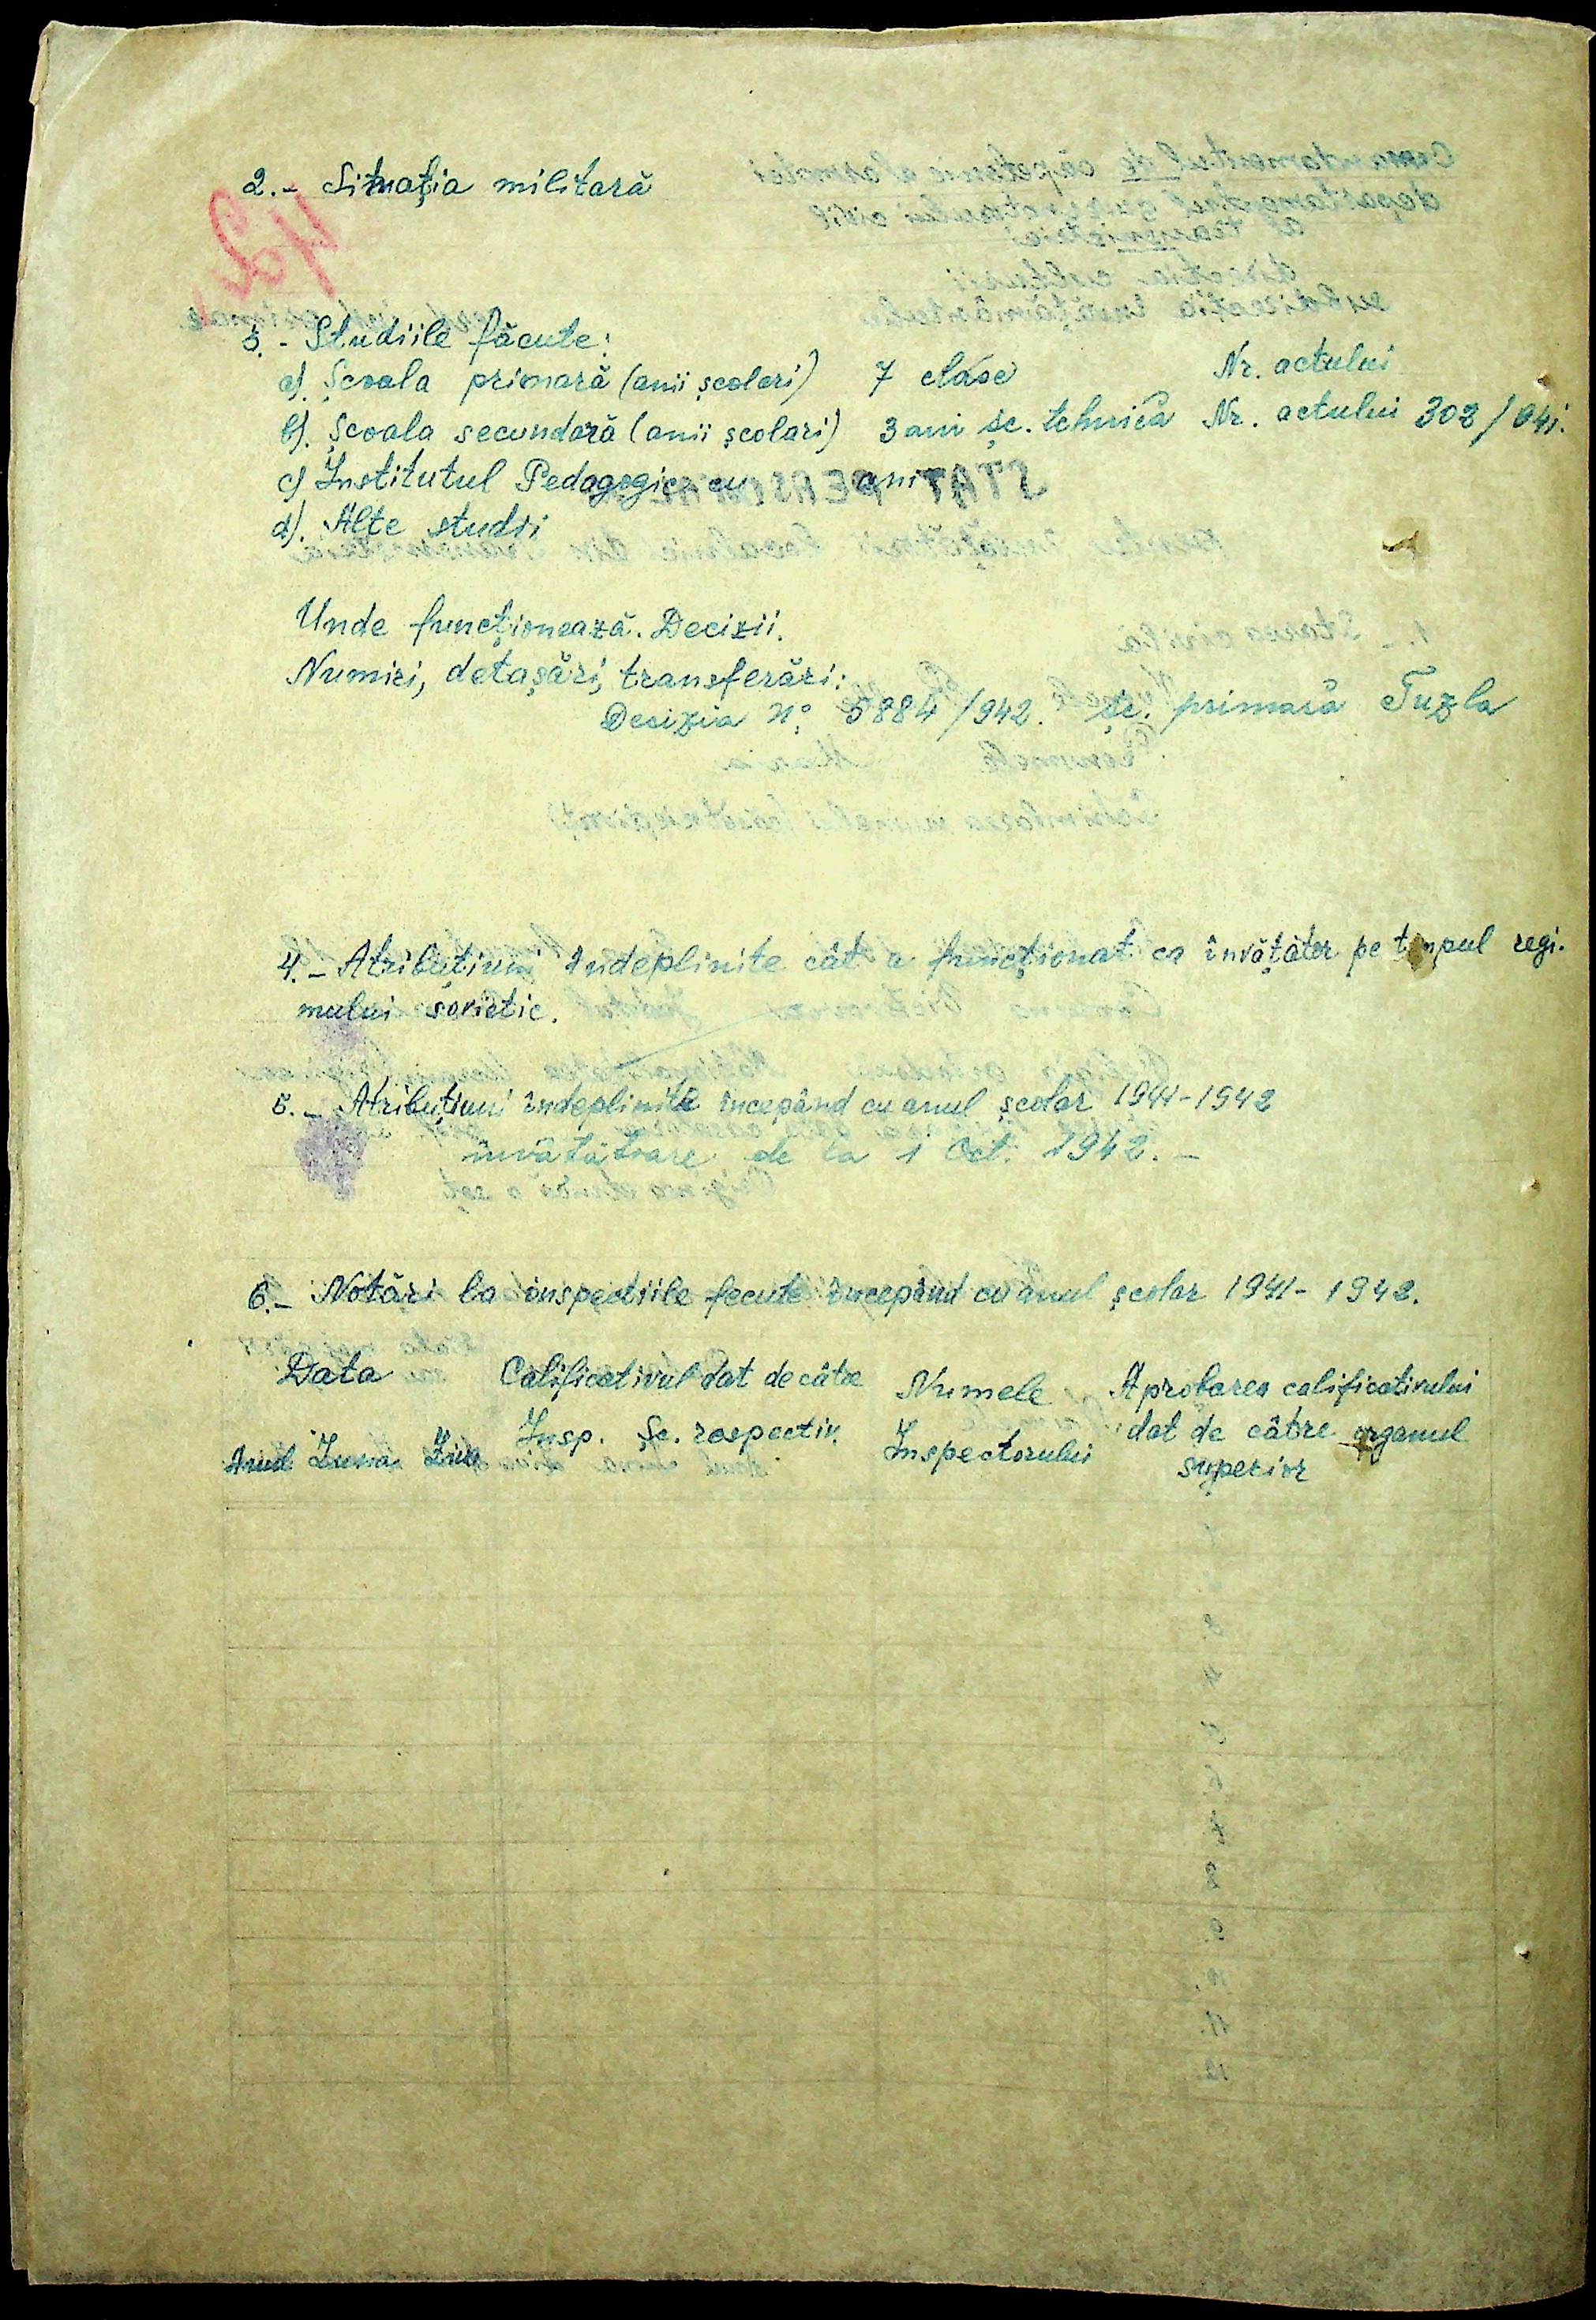 2.- Situația militară
3.- Studiile făcute:
a). Școala primară (anii școlari) 7 clase Nr. actului
b). Școala secundară (anii școlari) 3 ani șc. tehnică Nr. actului 308/941.
c) Institutul Pedagogic cu ani
d). Alte studii
Unde funcționează. Decizii.
Numiri, detașări, transferări:
Decizia No 5884/942. Șc. primară Tuzla
4.- Atribuțiuni îndeplinite cât a funcționat ca învățător pe timpul regi-
mului sovietic.
5.- Atribuțiuni îndeplinite începând cu anul școlar 1941-1942
învățătoare de la 1 Oct. 1942.-
6.- Notări la inspecțiile fecute începând cu anul școlar 1941-1942.
Data Calificativul dat de câtre Numele Aprobarea calificativului
Anul Luna Ziua Insp. Șc. respectiv. Inspectorului dat de către organul
superior